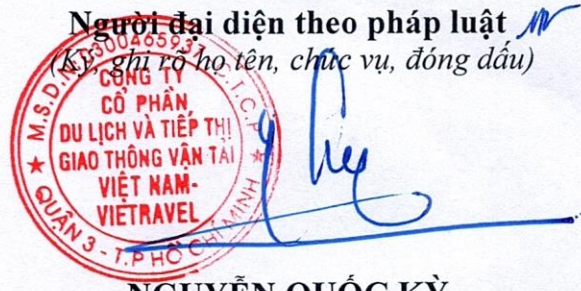 Người đại diện theo pháp luật
(Ký, ghi rõ họ tên, chức vụ, đóng dấu)
M.S.D.N: 0300465937 - C.T.C.P
CÔNG TY
CỔ PHẦN
DU LỊCH VÀ TIẾP THỊ
GIAO THÔNG VẬN TẢI
VIỆT NAM-
VIETRAVEL
QUẬN 3 - T.P HỒ CHÍ MINH
NGUYỄN QUỐC KỲ